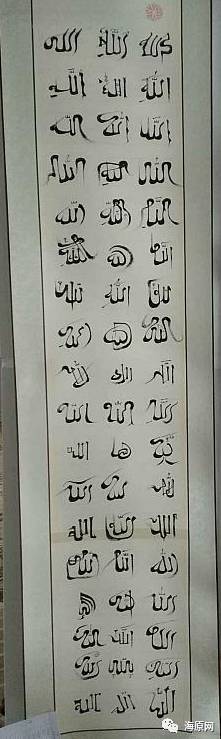 الله الله الله
الله الله الله
الله الله الله
الله الله الله
الله الله الله
الله الله الله
الله الله الله
الله الله الله
الله الله الله
الله الله الله
الله الله
الله الله الله
الله الله الله
الله الله الله
الله الله الله
الله الله الله
الله الله الله
الله الله الله
海原网